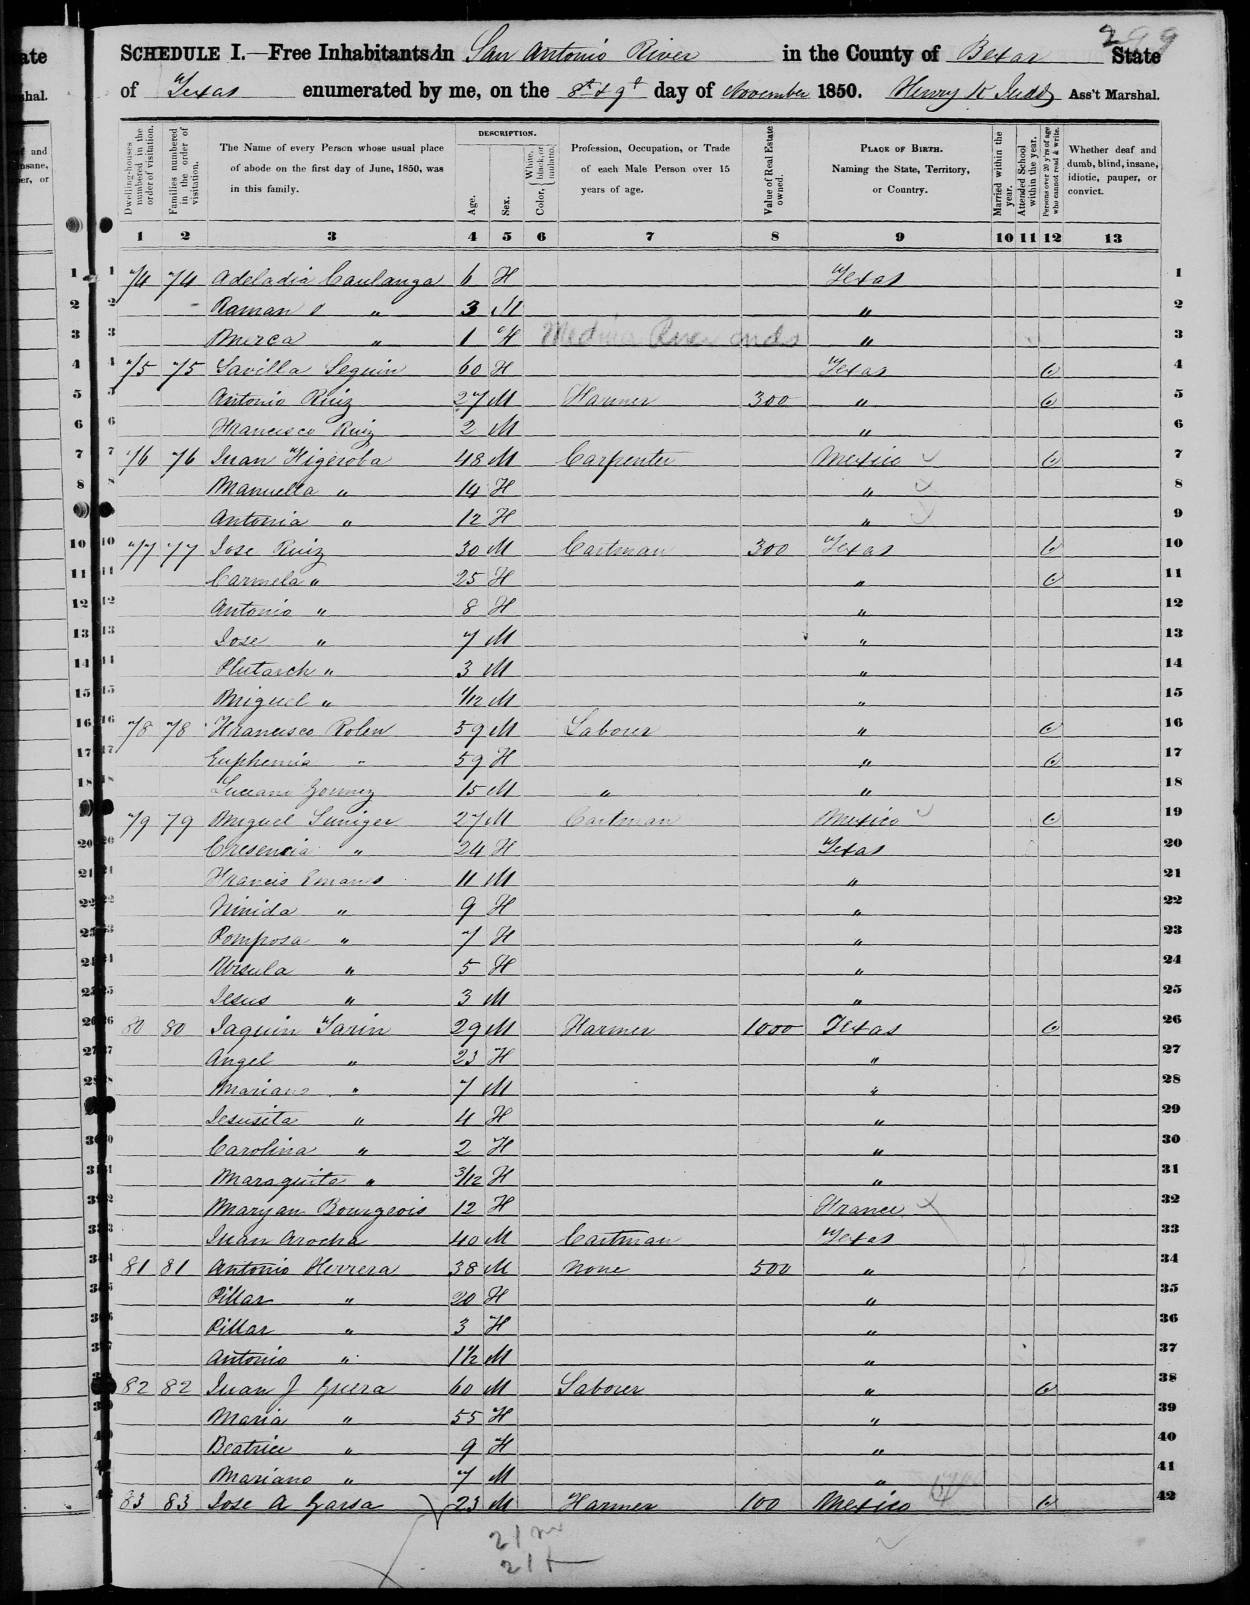 299
ate
SCHEDULE I.—Free Inhabitants in San Antonio River in the County of Bexar State
hal.
of Texas enumerated by me, on the 8t & 9t day of November 1850. Henry K Judd Ass't Marshal.
Dwelling-houses numbered in the order of visitation.
Families numbered in the order of visitation.
The Name of every Person whose usual place of abode on the first day of June, 1850, was in this family.
DESCRIPTION.
Age.
Sex.
Color, White, black, or mulatto.
Profession, Occupation, or Trade of each Male Person over 15 years of age.
Value of Real Estate owned.
PLACE OF BIRTH. Naming the State, Territory, or Country.
Married within the year.
Attended School within the year.
Persons over 20 y'rs of age who cannot read & write.
Whether deaf and dumb, blind, insane, idiotic, pauper, or convict.
1 2 3 4 5 6 7 8 9 10 11 12 13
1 74 74 Adeladia Caulanga 6 F Texas 1
2 Raman " 3 M " 2
3 " 1 F Medina River ends " 3
4 75 75 Savilla Seguin 60 F Texas 4
5 Antonio Ruiz 27 M Farmer 300 " 5
6 Francisco Ruiz 2 M " 6
7 76 76 Juan Figeroba 48 M Carpenter Mexico 7
8 Manuella " 14 F " 8
9 Antonia " 12 F " 9
10 77 77 Jose Ruiz 30 M Cartman 300 Texas 10
11 Carmela " 25 F " 11
12 Antonio " 8 F " 12
13 Jose " 7 M " 13
14 Plutarch " 3 M " 14
15 Miguel " 1/12 M " 15
16 78 78 Francisco Rolen 59 M Laborer " 16
17 Euphemia " 59 F " 17
18 Luciano Gomez 15 M " " 18
19 79 79 Miguel Suniger 27 M Cartman Mexico 19
20 Cresencia " 24 F Texas 20
21 Francis Emans 11 M " 21
22 Ninida " 9 F " 22
23 Pomposa " 7 F " 23
24 Ursula " 5 F " 24
25 Jesus " 3 M " 25
26 80 80 Jaquin Tarin 29 M Farmer 1000 Texas 26
27 Angel " 23 F " 27
28 Mariano " 7 M " 28
29 Jesusita " 4 F " 29
30 Carolina " 2 F " 30
31 Maraquita " 3/12 F " 31
32 Maryan Bourgeois 12 F France 32
33 Juan Arocha 40 M Cartman Texas 33
34 81 81 Antonio Herrera 38 M None 500 " 34
35 Pillar " 20 F " 35
36 Pillar " 3 F " 36
37 Antonio " 1 1/2 M " 37
38 82 82 Juan J Guera 60 M Laborer " 38
39 Maria " 55 F " 39
40 Beatrice " 9 F " 40
41 Mariano " 7 M " 41
42 83 83 Jose A Garsa 23 M Farmer 100 Mexico 42
21 m
21 f